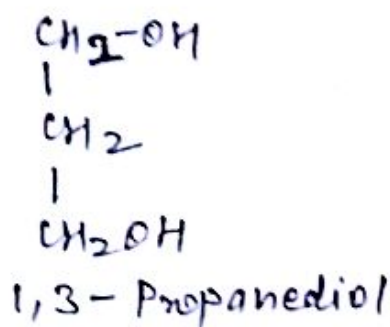 CH2-OH
|
CH2
|
CH2OH
1,3-Propanediol